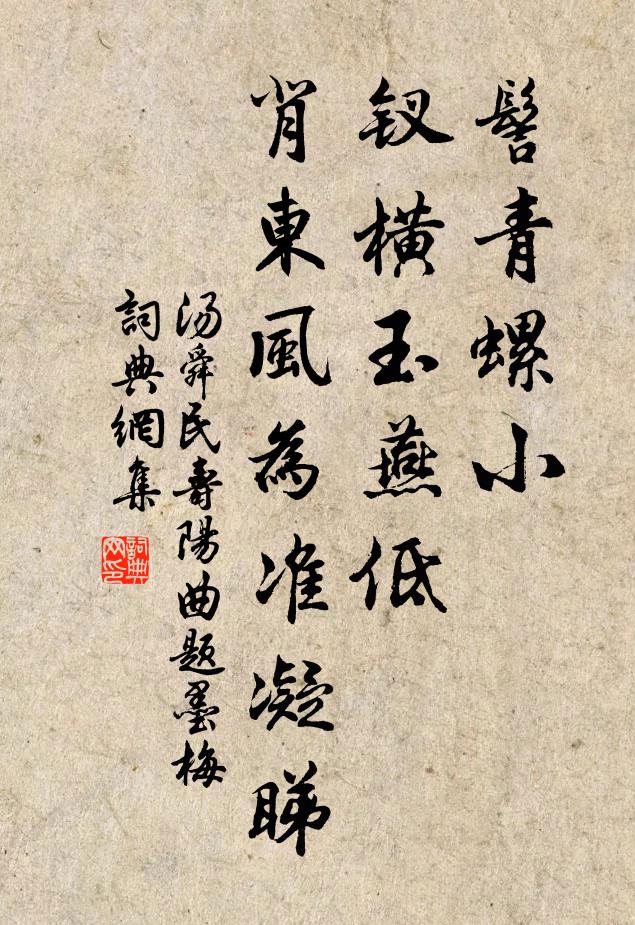 髻青螺小
钗橫玉燕低
背東風為谁凝睇
汤舜民壽陽曲题墨梅
詞典網集
詞典网印